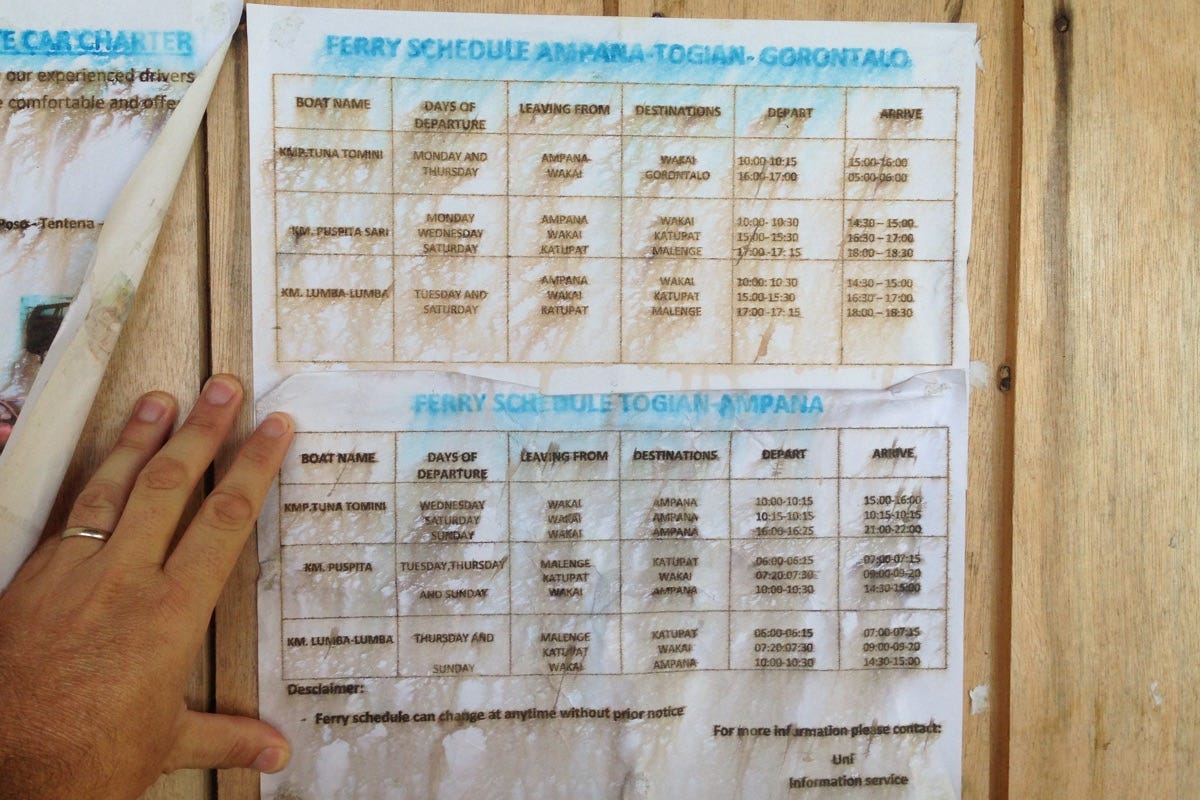 E CAR CHARTER
our experienced drivers
e comfortable and offe
Poso - Tentena -
FERRY SCHEDULE AMPANA-TOGIAN- GORONTALO
BOAT NAME DAYS OF DEPARTURE LEAVING FROM DESTINATIONS DEPART ARRIVE
KMP.TUNA TOMINI MONDAY AND AMPANA- WAKAI 10:00-10:15 15:00-16:00
THURSDAY WAKAI GORONTALO 16:00-17:00 05:00-06:00
MONDAY AMPANA WAKAI 10:00-10:30 14:30 – 15:00
KM. PUSPITA SARI WEDNESDAY WAKAI KATUPAT 15:00-15:30 16:30 – 17:00
SATURDAY KATUPAT MALENGE 17:00-17:15 18:00 – 18:30
AMPANA WAKAI 10:00:10:30 14:30 – 15:00
KM. LUMBA-LUMBA TUESDAY AND WAKAI KATUPAT 15:00-15:30 16:30 – 17:00
SATURDAY KATUPAT MALENGE 17:00 -17:15 18:00 – 18:30
FERRY SCHEDULE TOGIAN-AMPANA
BOAT NAME DAYS OF DEPARTURE LEAVING FROM DESTINATIONS DEPART ARRIVE
KMP.TUNA TOMINI WEDNESDAY WAKAI AMPANA 10:00-10:15 15:00-16:00
SATURDAY WAKAI AMPANA 10:15-10:15 10:15-10:15
SUNDAY WAKAI AMPANA 16:00-16:25 21:00-22:00
KM. PUSPITA TUESDAY,THURSDAY MALENGE KATUPAT 06:00-06:15 07:00-07:15
KATUPAT WAKAI 07:20-07:30 09:00-09-20
AND SUNDAY WAKAI AMPANA 10:00-10:30 14:30-15:00
KM. LUMBA-LUMBA THURSDAY AND MALENGE KATUPAT 06:00-06:15 07:00-07:15
KATUPAT WAKAI 07:20-07:30 09:00-09-20
SUNDAY WAKAI AMPANA 10:00-10:30 14:30-15:00
Desclaimer:
- Ferry schedule can change at anytime without prior notice
For more information please contact:
Unf
Information service